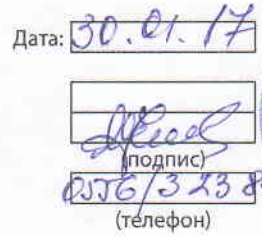 Дата: 30.01.17
(подпис)
0556/3 23 8
(телефон)